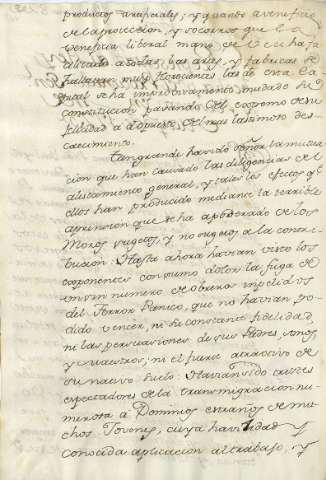 productos artificiales; y quando a veneficio
de la proteccion, y socorros que la
venefica liberal mano de V.M. ha fa
cilitado a todas las artes y fabricas de
florecientes las de esta
se ha improvisamente mudado la
constitucion pasando del extremo de su
felicidad a el opuesto del mas lastimoso des
caecimiento.
Tan grande ha sido Señor la muta
cion que han causado las diligencias del
alistamiento general, y tales los efectos q.
ellos han producido mediante la terrible
aprension que se ha apoderado de los
Mozos sugetos, y no sugetos a la contri
bucion. Hasta ahora havian visto los
exponentes con sumo dolor la fuga de
un sin numero de obreros impelidos
del Terror Panico, que no havian po
dido vencer, ni su constante fidelidad,
ni las persuaciones de sus Padres, Amos,
y Maestros, ni el fuerte atractivo de
su nativo suelo. Havian sido tristes
expectadores de la transmigracion nu
merosa a Dominios extraños de mu
chos Jovenes, cuya havilidad y
conocida aplicacion al trabajo, y